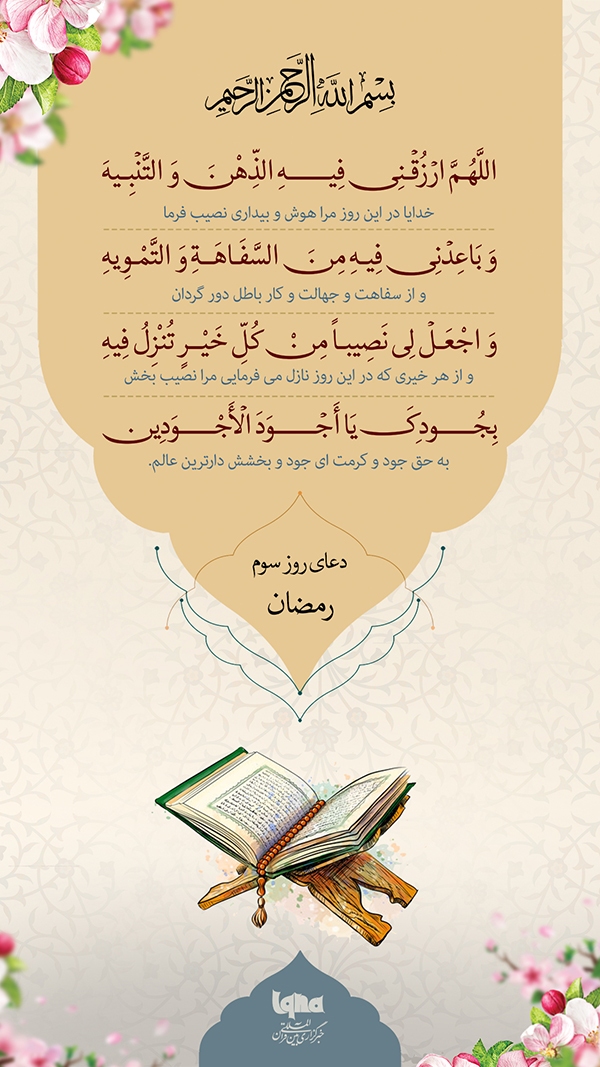 بِسْمِ اللَّهِ الرَّحْمَنِ الرَّحِيمِ
اللَّهُمَّ ارْزُقْنِی فِیهِ الذِّهْنَ وَ التَّنْبِیهَ
خدایا در این روز مرا هوش و بیداری نصیب فرما
وَ بَاعِدْنِی فِیهِ مِنَ السَّفَاهَةِ وَ التَّمْوِیهِ
و از سفاهت و جهالت و کار باطل دور گردان
وَ اجْعَلْ لِی نَصِیباً مِنْ کُلِّ خَیْرٍ تُنْزِلُ فِیهِ
و از هر خیری که در این روز نازل می فرمایی مرا نصیب بخش
بِجُودِکَ یَا أَجْوَدَ الْأَجْوَدِین
به حق جود و کرمت ای جود و بخشش دارترین عالم.
دعای روز سوم
رمضان
iqna
خبرگزاری بین المللی قرآن